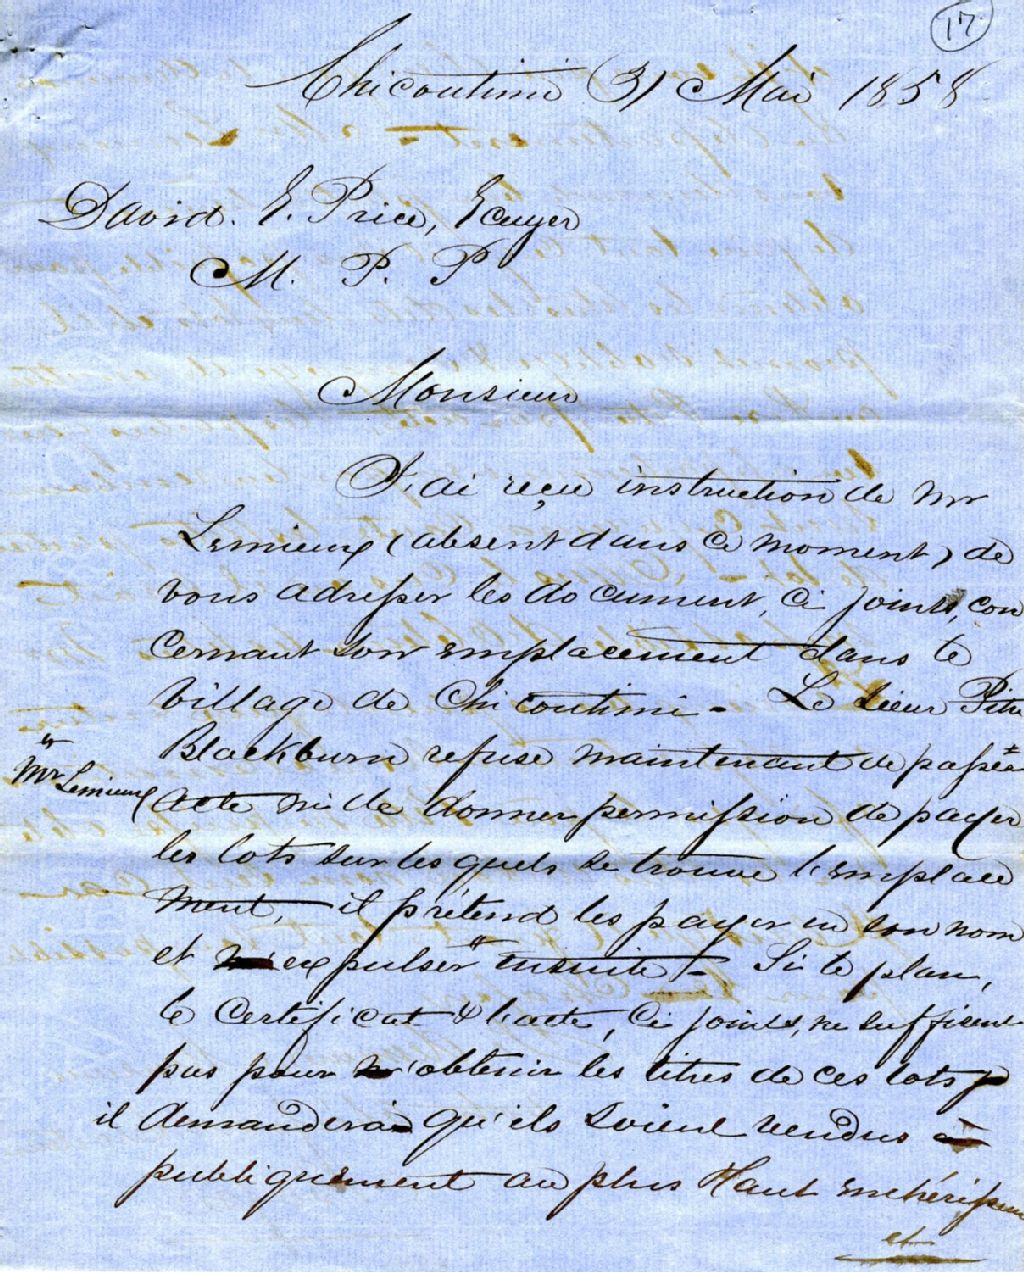 17
Chicoutimi 31 Mai 1858
David. E. Price, Ecuyer
M. P. P
Monsieur
J'ai reçu instruction de Mr
Lemieux (absent dans ce moment) de
vous adresser les document, ci joints, con
cernant son emplacement dans le
Village de Chicoutimi - Le Sieur Pitre
Blackburn refuse maintenant de passer
Mr Lemieux
acte ni de donner permission de payer
les lots sur les quels se trouve l'emplace
ment, il prétend les payer en son nom
et expulser ensuite - Si le plan,
le certificat & l'acte, ci joints, ne suffisent
pas pour obtenir les titres de ces lots
il demanderai qu'ils soient vendus
publiquement au plus Haut enchérisseur
et